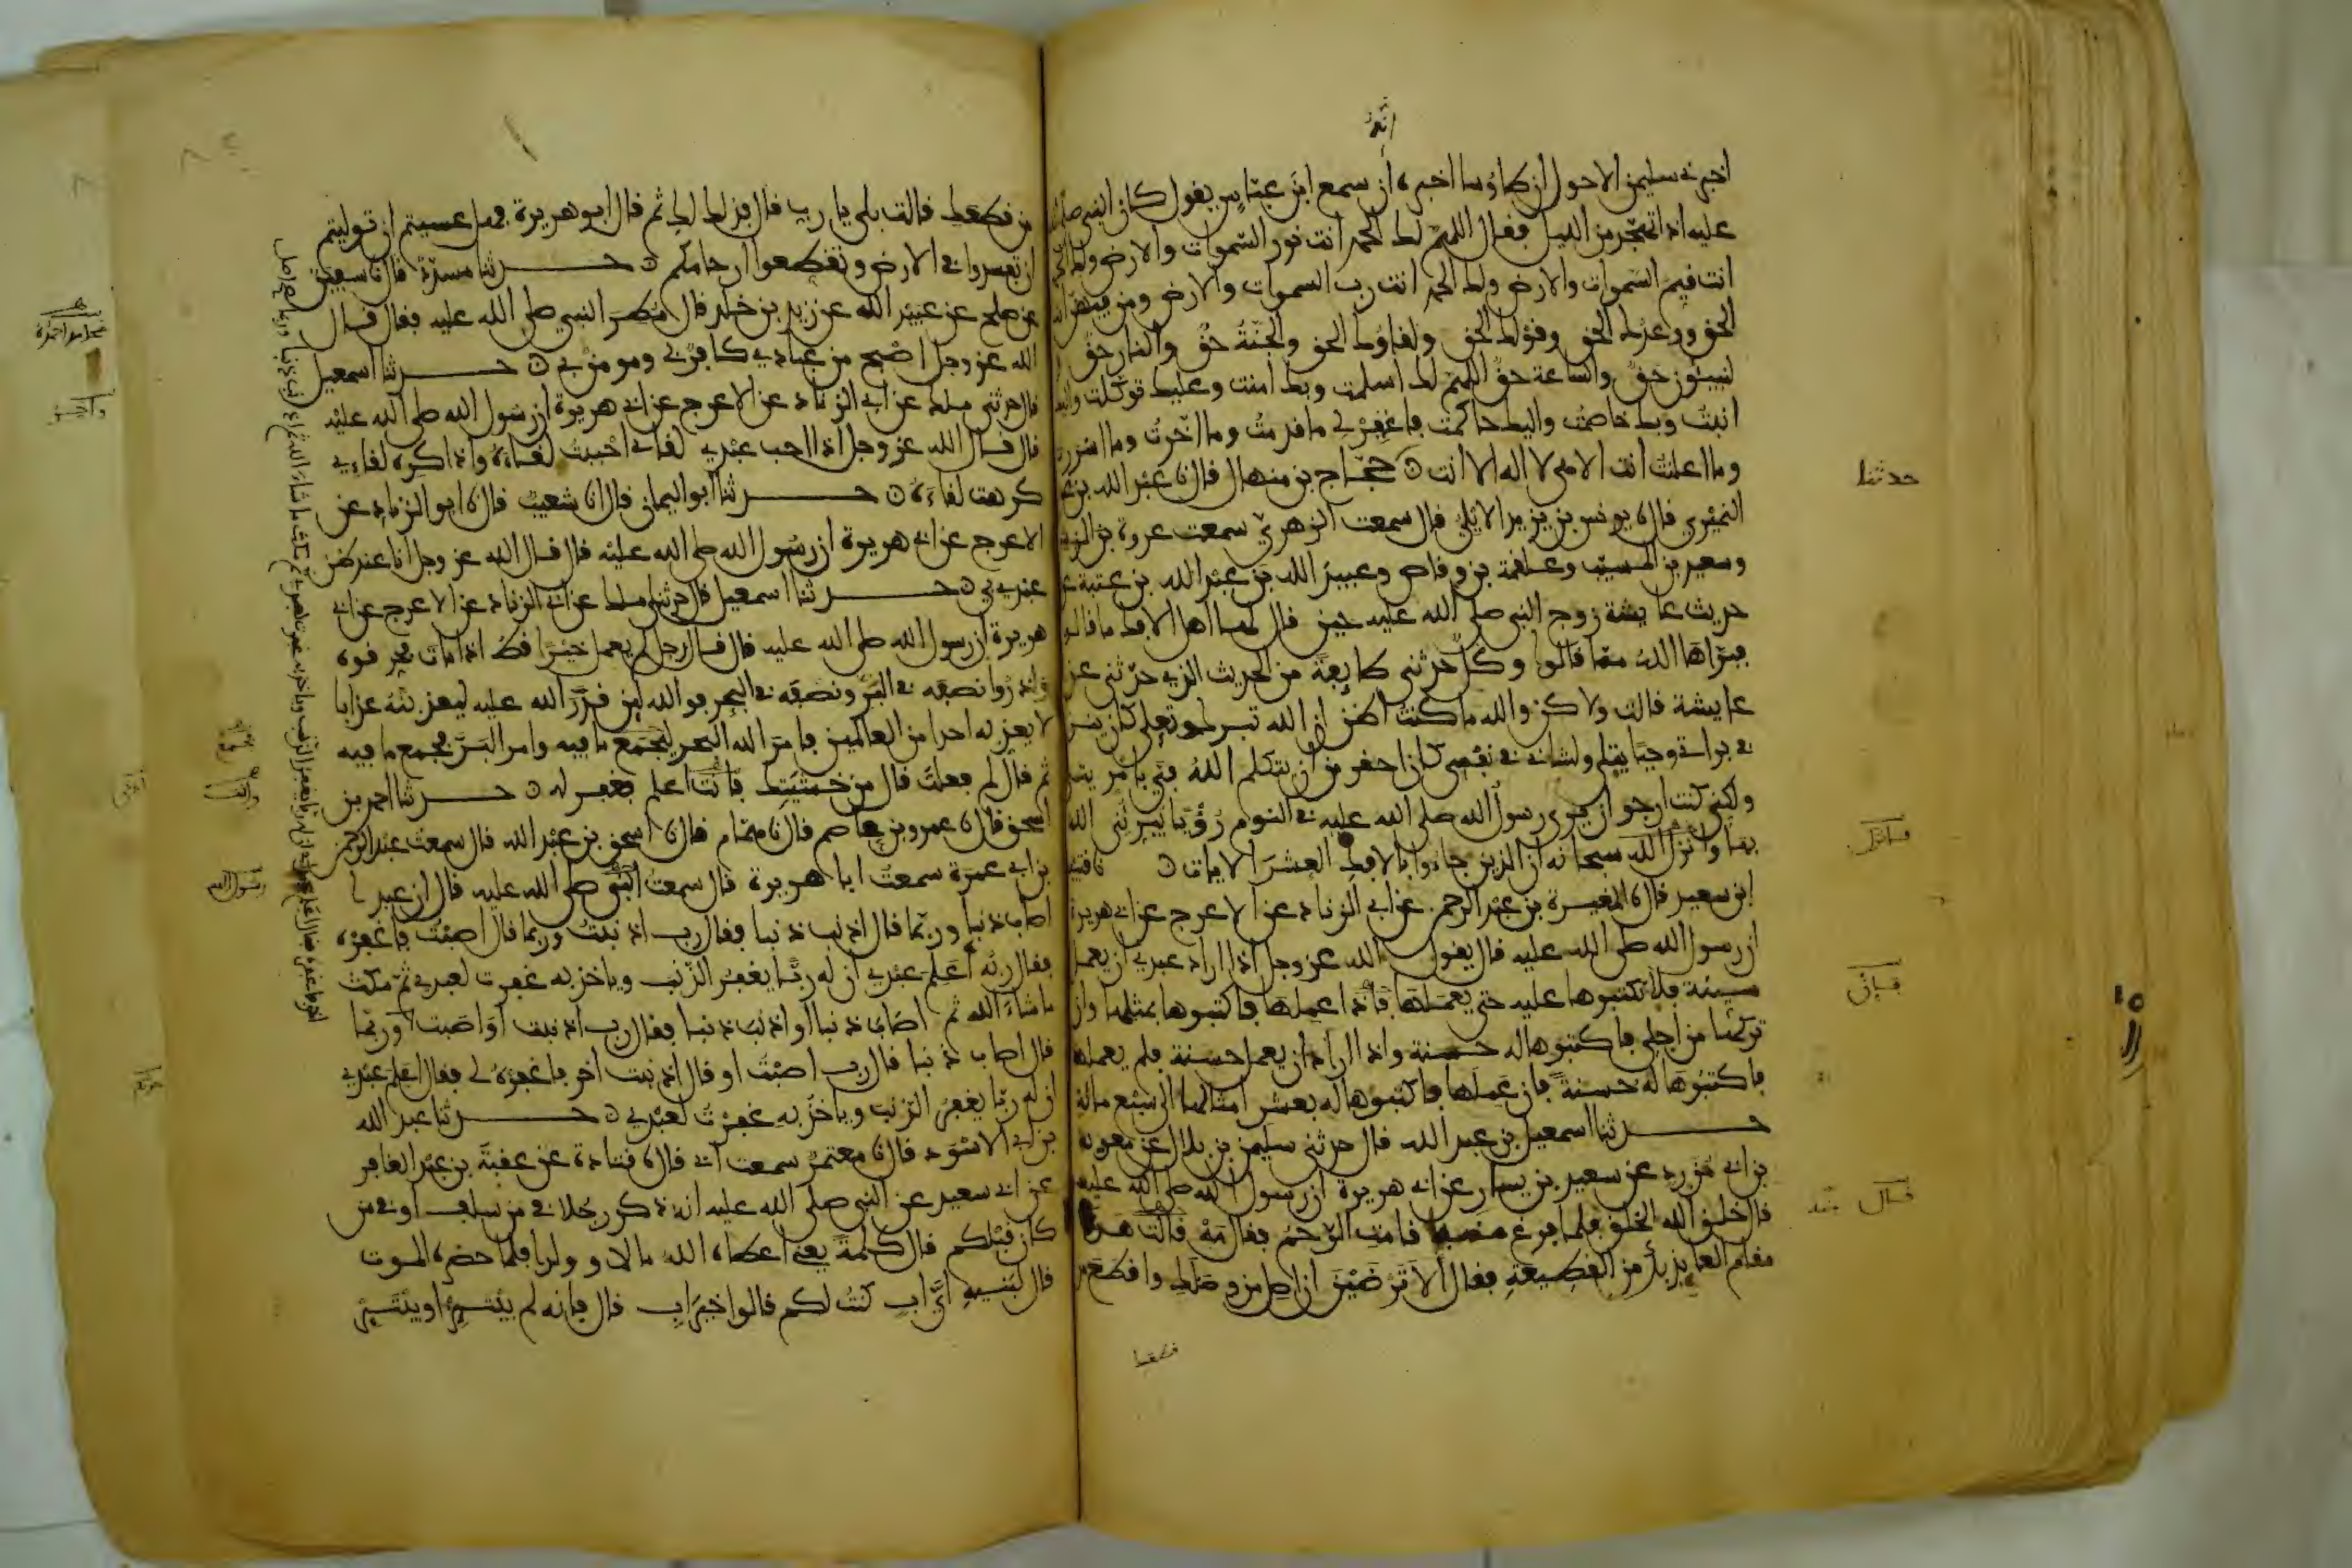 انه
اخبرني سليمن الاحول ان طاوسا اخبره ان سمع ابن عباس يقول كان النبي صلى الله
عليه اذا تهجد من الليل فقال اللهم لك الحمد انت نور السموات والارض ولك الحمد
انت قيم السموات والارض ولك الحمد انت رب السموات والارض ومن فيهن انت
الحق ووعدك الحق وقولك الحق ولقاؤك الحق والجنة حق والنار حق و
لنبيئون حق والساعة حق اللهم لك اسلمت وبك امنت وعليك توكلت واليك
انبت وبك خاصمت واليك حاكمت فاغفر لي ما قدمت وما اخرت وما اسررت
وما اعلنت انت الاهي لا اله الا انت حجاج بن منهال قال نا عبد الله بن عمر
حدثنا
النميري قال نا يونس بن يزيد الايلي قال سمعت الزهري سمعت عروة بن الزبير
وسعيد بن المسيب وعلقمة بن وقاص وعبيد الله بن عبد الله بن عتبة عن
حديث عايشة زوج النبي صلى الله عليه حين قال لها اهل الافك ما قالوا
فبراها الله مما قالوا وكل حدثني طايفة من الحديث الذي حدثني عن
عايشة قالت ولاكن والله ما كنت اظن ان الله تبرك وتعلى كان ينزل
في براتي وحيا يتلى ولشاني في نفسي كان احقر من ان يتكلم الله في بامر يتلى
ولكني كنت ارجو ان يرى رسول الله صلى الله عليه في النوم رؤيا يبرئني الله
بها وانزل الله سبحانه ان الذين جاءوا بالافك العشر الايات نا قتيبة
فانزل
ابن سعيد قال نا المغيرة بن عبد الرحمن عن ابي الزناد عن الاعرج عن ابي هريرة
ان رسول الله صلى الله عليه قال يقول الله عز وجل اذا اراد عبدي ان يعمل
سيئة فلا تكتبوها عليه حتى يعملها فاذا عملها فاكتبوها بمثلها وان
فان
تركها من اجلي فاكتبوها له حسنة واذا اراد ان يعمل حسنة فلم يعملها
فاكتبوها له حسنة فان عملها فاكتبوها له بعشر امثالها الى سبع مائة
حدثنا اسمعيل بن عبد الله قال حدثني سليمن بن بلال عن معوية
بن ابي مزرد عن سعيد بن يسار عن ابي هريرة ان رسول الله صلى الله عليه
قال خلق الله الخلق فلما فرغ منه قامت الرحم فقال مه قالت هذا
قال
مقام العايذ بك من القطيعة فقال الا ترضين ان اصل من وصلك واقطع
من قطعك قالت بلى يا رب قال فذلك لك ثم قال ابو هريرة فهل عسيتم ان توليتم
ان تفسدوا في الارض وتقطعوا ارحامكم حدثنا مسدد قال نا سفين
عن صلح عن عبيد الله عن زيد بن خلد قال مطر النبي صلى الله عليه فقال قال
الله عز وجل اصبح من عبادي كافر بي ومومن بي حدثنا اسمعيل
قال حدثني ملك عن ابي الزناد عن الاعرج عن ابي هريرة ان رسول الله صلى الله عليه
قال قال الله عز وجل اذا احب عبدي لقائي احببت لقاءه واذا كره لقاءي
كرهت لقاءه حدثنا ابو اليمان قال انا شعيب قال نا ابو الزناد عن
الاعرج عن ابي هريرة ان رسول الله صلى الله عليه قال قال الله عز وجل انا عند ظن
عبدي بي حدثنا اسمعيل قال حدثني ملك عن ابي الزناد عن الاعرج عن ابي
هريرة ان رسول الله صلى الله عليه قال قال رجل لم يعمل خيرا قط اذا مات فحرقوه
واذروا نصفه في البر ونصفه في البحر فوالله لين قدر الله عليه ليعذبنه عذابا
لا يعذبه احدا من العالمين فامر الله البحر ليجمع ما فيه وامر البر فجمع ما فيه
ثم قال لم فعلت قال من خشيتك فانت اعلم فغفر له حدثنا احمد بن
اسحق قال نا عمرو بن عاصم قال نا همام قال نا اسحق بن عبد الله قال سمعت عبد الرحمن
بن ابي عمرة سمعت ابا هريرة قال سمعت النبي صلى الله عليه قال ان عبدا
رسول الله
اصاب ذنبا وربما قال اذنب ذنبا فقال رب اذنبت وربما قال اصبت فاغفره
فقال ربه اعلم عبدي ان له ربا يغفر الذنب وياخذ به غفرت لعبدي ثم مكث
ما شاء الله ثم اصاب ذنبا او اذنب ذنبا فقال رب اذنبت او اصبت وربما
قال اصاب ذنبا قال رب اصبت او قال اذنبت اخر فاغفره لي فقال اعلم عبدي
ان له ربا يغفر الذنب وياخذ به غفرت لعبدي حدثنا عبد الله
بن ابي الاسود قال نا معتمر سمعت ابي قال نا قتادة عن عقبة بن عبد الغافر
عن ابي سعيد عن النبي صلى الله عليه انه ذكر رجلا في من سلف او في من
كان قبلكم قال كلمة يعني اعطاه الله مالا وولدا فلما حضره الموت
قال لبنيه اي اب كنت لكم قالوا خير اب قال فانه لم يبتئر او يبتئز